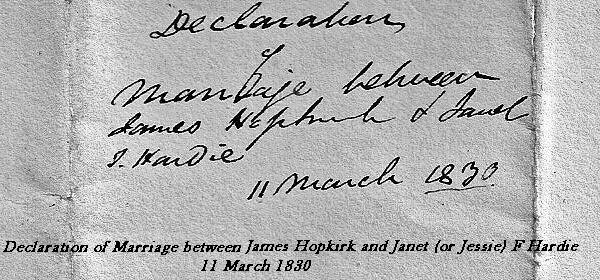 Declaration
of
Marriage between
James Hopkirk & Janet
F. Hardie
11 March 1830.
Declaration of Marriage between James Hopkirk and Janet (or Jessie) F Hardie
11 March 1830